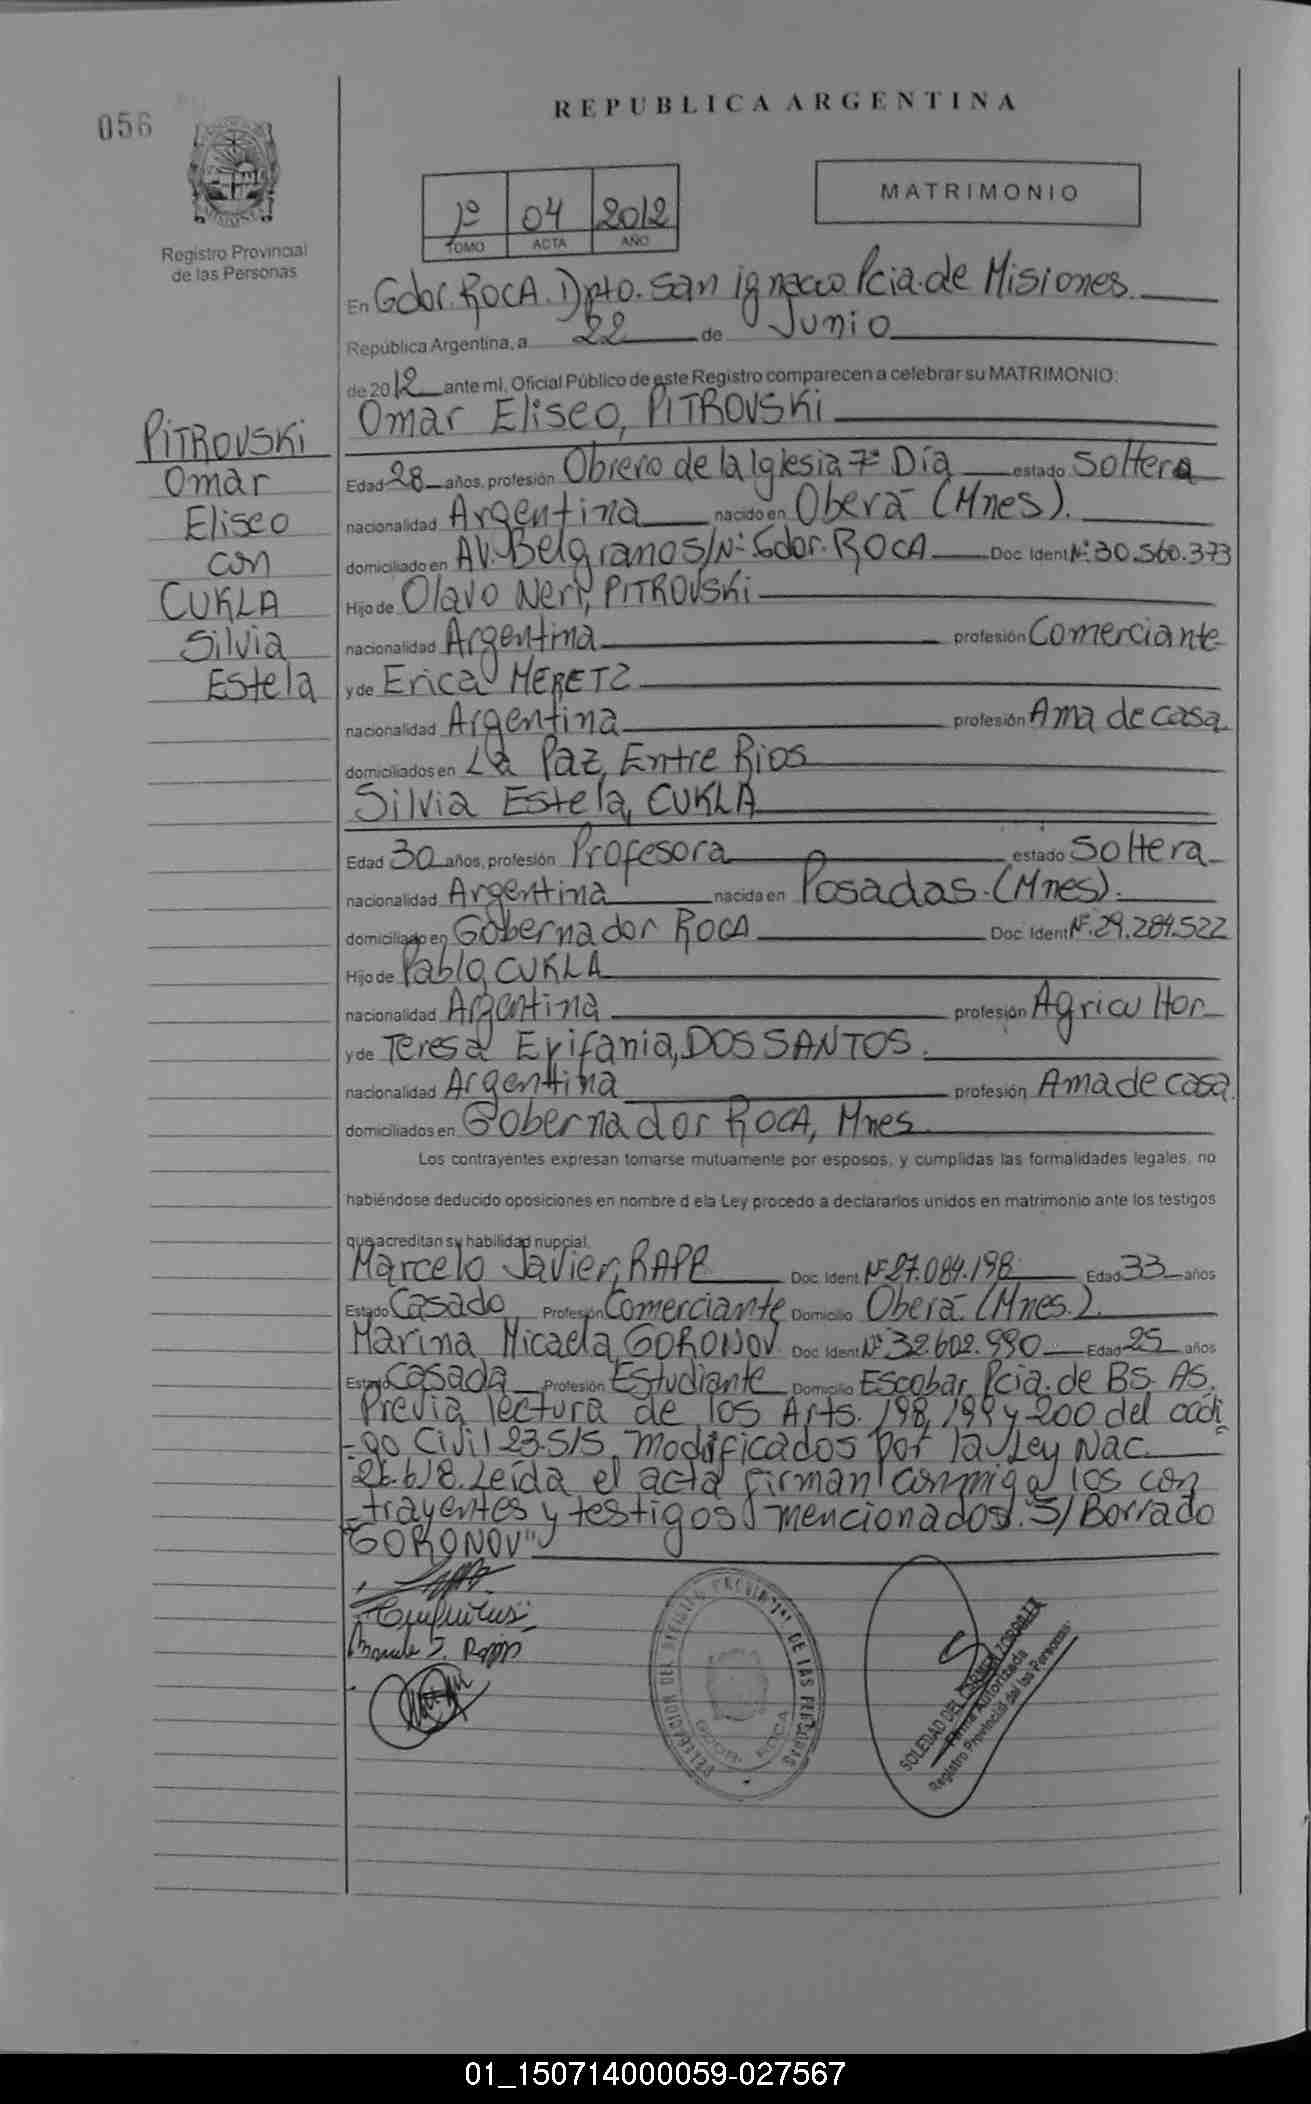 056
REPUBLICA ARGENTINA
Registro Provincial
de las Personas
1º 04 2012
TOMO ACTA AÑO
MATRIMONIO
En Gdor. ROCA. Dpto. San ignacio Pcia. de Misiones.
República Argentina, a 22 de Junio
de 2012 ante mi, Oficial Público de este Registro comparecen a celebrar su MATRIMONIO:
PITROVSKi
Omar
Eliseo
con
CUKLA
Silvia
Estela
Omar Eliseo, PITROVSKi
Edad 28 años, profesión Obrero de la Iglesia 7º Día estado Soltera
nacionalidad Argentina nacido en Oberá (Mnes).
domiciliado en AV. Belgrano S/Nº Gdor. ROCA Doc. Ident. Nº 30.560.373
Hijo de Olavo Neri, PITROVSKi
nacionalidad Argentina profesión Comerciante
y de Erica MERETZ
nacionalidad Argentina profesión Ama de casa.
domiciliados en La Paz, Entre Rios
Silvia Estela, CUKLA
Edad 30 años, profesión Profesora estado Soltera
nacionalidad Argentina nacida en Posadas. (Mnes).
domiciliado en Gobernador ROCA Doc. Ident. Nº 29.284.522
Hijo de Pablo, CUKLA
nacionalidad Argentina profesión Agricultor
y de Teresa Epifania, DOS SANTOS.
nacionalidad Argentina profesión Ama de casa.
domiciliados en Gobernador ROCA, Mnes.
Los contrayentes expresan tomarse mutuamente por esposos, y cumplidas las formalidades legales, no
habiéndose deducido oposiciones en nombre d ela Ley procedo a declararlos unidos en matrimonio ante los testigos
que acreditan su habilidad nupcial.
Marcelo Javier, RAPP Doc. Ident. Nº 27.084.198 Edad 33 años
Estado Casado Profesión Comerciante Domicilio Oberá. (Mnes.).
Marina Micaela GORONOV. Doc. Ident. Nº 32.602.990 Edad 25 años
Estado Casada Profesión Estudiante Domicilio Escobar, Pcia. de BS. AS.
Previa lectura de los Arts. 198, 199 y 200 del
-go Civil 23.515, modificados por la Ley Nac.
26.618. Leída el acta firman conmigo los con
-trayentes y testigos mencionados. S/ Borrado
"GORONOV"
DELEGACION DEL REGISTRO PROVINCIAL DE LAS PERSONAS
GDOR. ROCA
SOLEDAD DEL
Firma Autorizada
Registro Provincial de las Personas
01_150714000059-027567